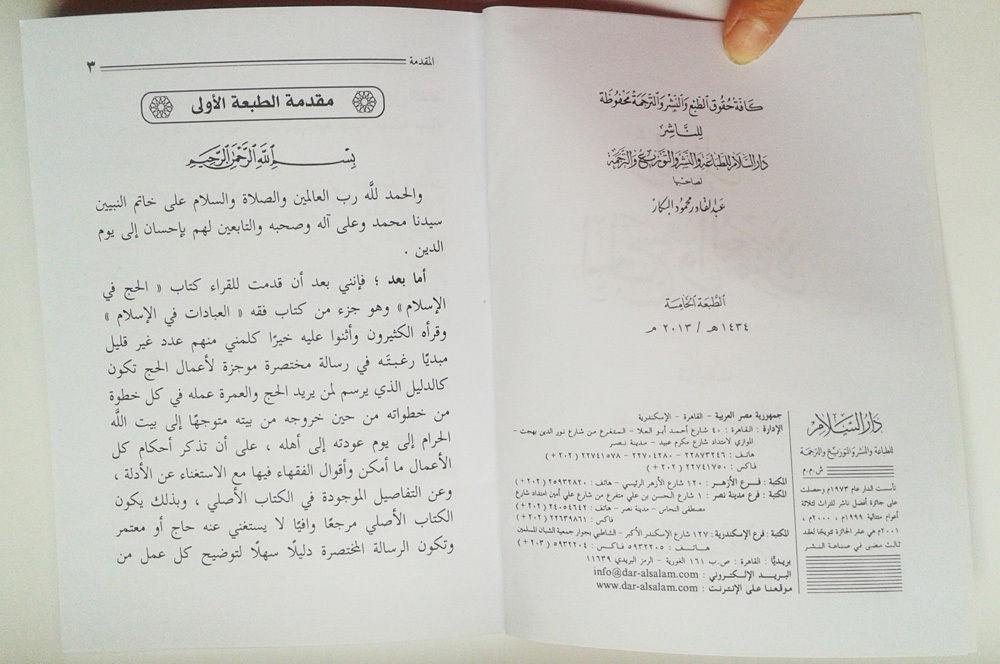 كافة حقوق الطبع والنشر والترجمة محفوظة
للناشر
دار السلام للطباعة والنشر والتوزيع والترجمة
لصاحبها
عبد القادر محمود البكار
الطبعة الخامسة
١٤٣٤ هـ / ٢٠١٣ م
دار السلام
للطباعة والنشر والتوزيع والترجمة
ش.م.م
تأسست الدار عام ١٩٧٣م وحصلت
على جائزة أفضل ناشر للتراث لثلاثة
أعوام متتالية ١٩٩٩م ، ٢٠٠٠م ،
٢٠٠١م هي عشر الجائزة تتويجًا لعقد
ثالث مضى في صناعة النشر
جمهورية مصر العربية - القاهرة - الإسكندرية
الإدارة : القاهرة : ٤٠ شارع أحمد أبو العلا - المتفرع من شارع نور الدين بهجت -
الموازي لامتداد شارع مكرم عبيد - مدينة نصر
هاتف : ٢٢٨٧٣٢٤٦ - ٢٢٧٠٤٢٨٠ - ٢٢٧٤١٥٧٨ ( ٢٠٢ + )
فاكس : ٢٢٧٤١٧٥٠ ( ٢٠٢ + )
المكتبة : فرع الأزهر : ١٢٠ شارع الأزهر الرئيسي - هاتف : ٢٥٩٣٢٨٢٠ ( ٢٠٢ + )
المكتبة : فرع مدينة نصر : ١ شارع الحسن بن علي متفرع من شارع علي أمين امتداد شارع
مصطفى النحاس - مدينة نصر - هاتف : ٢٤٠٥٤٦٤٢ ( ٢٠٢ + )
فاكس : ٢٢٦٣٩٨٦١ ( ٢٠٢ + )
المكتبة : فرع الإسكندرية : ١٢٧ شارع الإسكندر الأكبر - الشاطبي بجوار جمعية الشبان المسلمين
هاتف : ٥٩٣٢٢٠٥ فاكس : ٥٩٣٢٢٠٤ ( ٢٠٣ + )
بريديًا : القاهرة : ص.ب ١٦١ الغورية - الرمز البريدي ١١٦٣٩
البريد الإلكتروني : info@dar-alsalam.com
موقعنا على الإنترنت : www.dar-alsalam.com
المقدمة ٣
مقدمة الطبعة الأولى
بسم الله الرحمن الرحيم
والحمد للَّه رب العالمين والصلاة والسلام على خاتم النبيين
سيدنا محمد وعلى آله وصحبه والتابعين لهم بإحسان إلى يوم
الدين .
أما بعد ؛ فإنني بعد أن قدمت للقراء كتاب « الحج في
الإسلام » وهو جزء من كتاب فقه « العبادات في الإسلام »
وقرأه الكثيرون وأثنوا عليه خيرًا كلمني منهم عدد غير قليل
مبديًا رغبتَه في رسالة مختصرة موجزة لأعمال الحج تكون
كالدليل الذي يرسم لمن يريد الحج والعمرة عمله في كل خطوة
من خطواته من حين خروجه من بيته متوجهًا إلى بيت اللَّه
الحرام إلى يوم عودته إلى أهله ، على أن تذكر أحكام كل
الأعمال ما أمكن وأقوال الفقهاء فيها مع الاستغناء عن الأدلة ،
وعن التفاصيل الموجودة في الكتاب الأصلي ، وبذلك يكون
الكتاب الأصلي مرجعًا وافيًا لا يستغني عنه حاج أو معتمر
وتكون الرسالة المختصرة دليلًا سهلًا لتوضيح كل عمل من